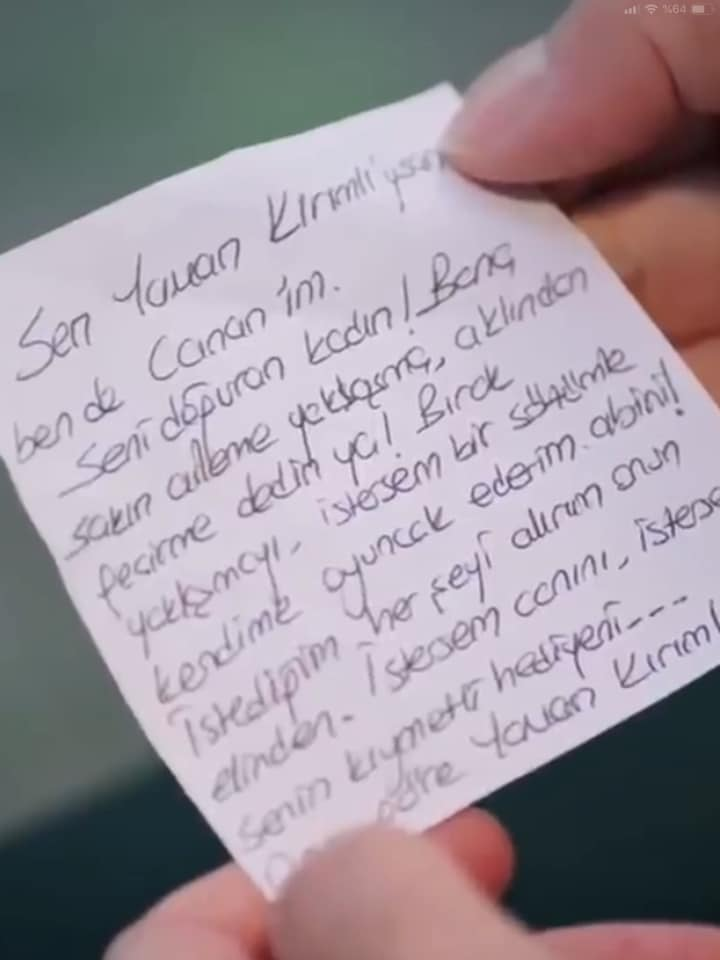 %64
Sen Yaman Kırımlı'ysan
ben de Canan'ım.
Seni doğuran kadın! Bana
sakın aileme yaklaşma, aklından
geçirme dedin ya! Bırak
yaklaşmayı, istersem bir sözümle
kendime oyuncak ederim abini!
İstediğim her şeyi alırım onun
elinden. İstersem canını, isterse
senin kıymetli hediyeni---
göre Yaman Kırıml